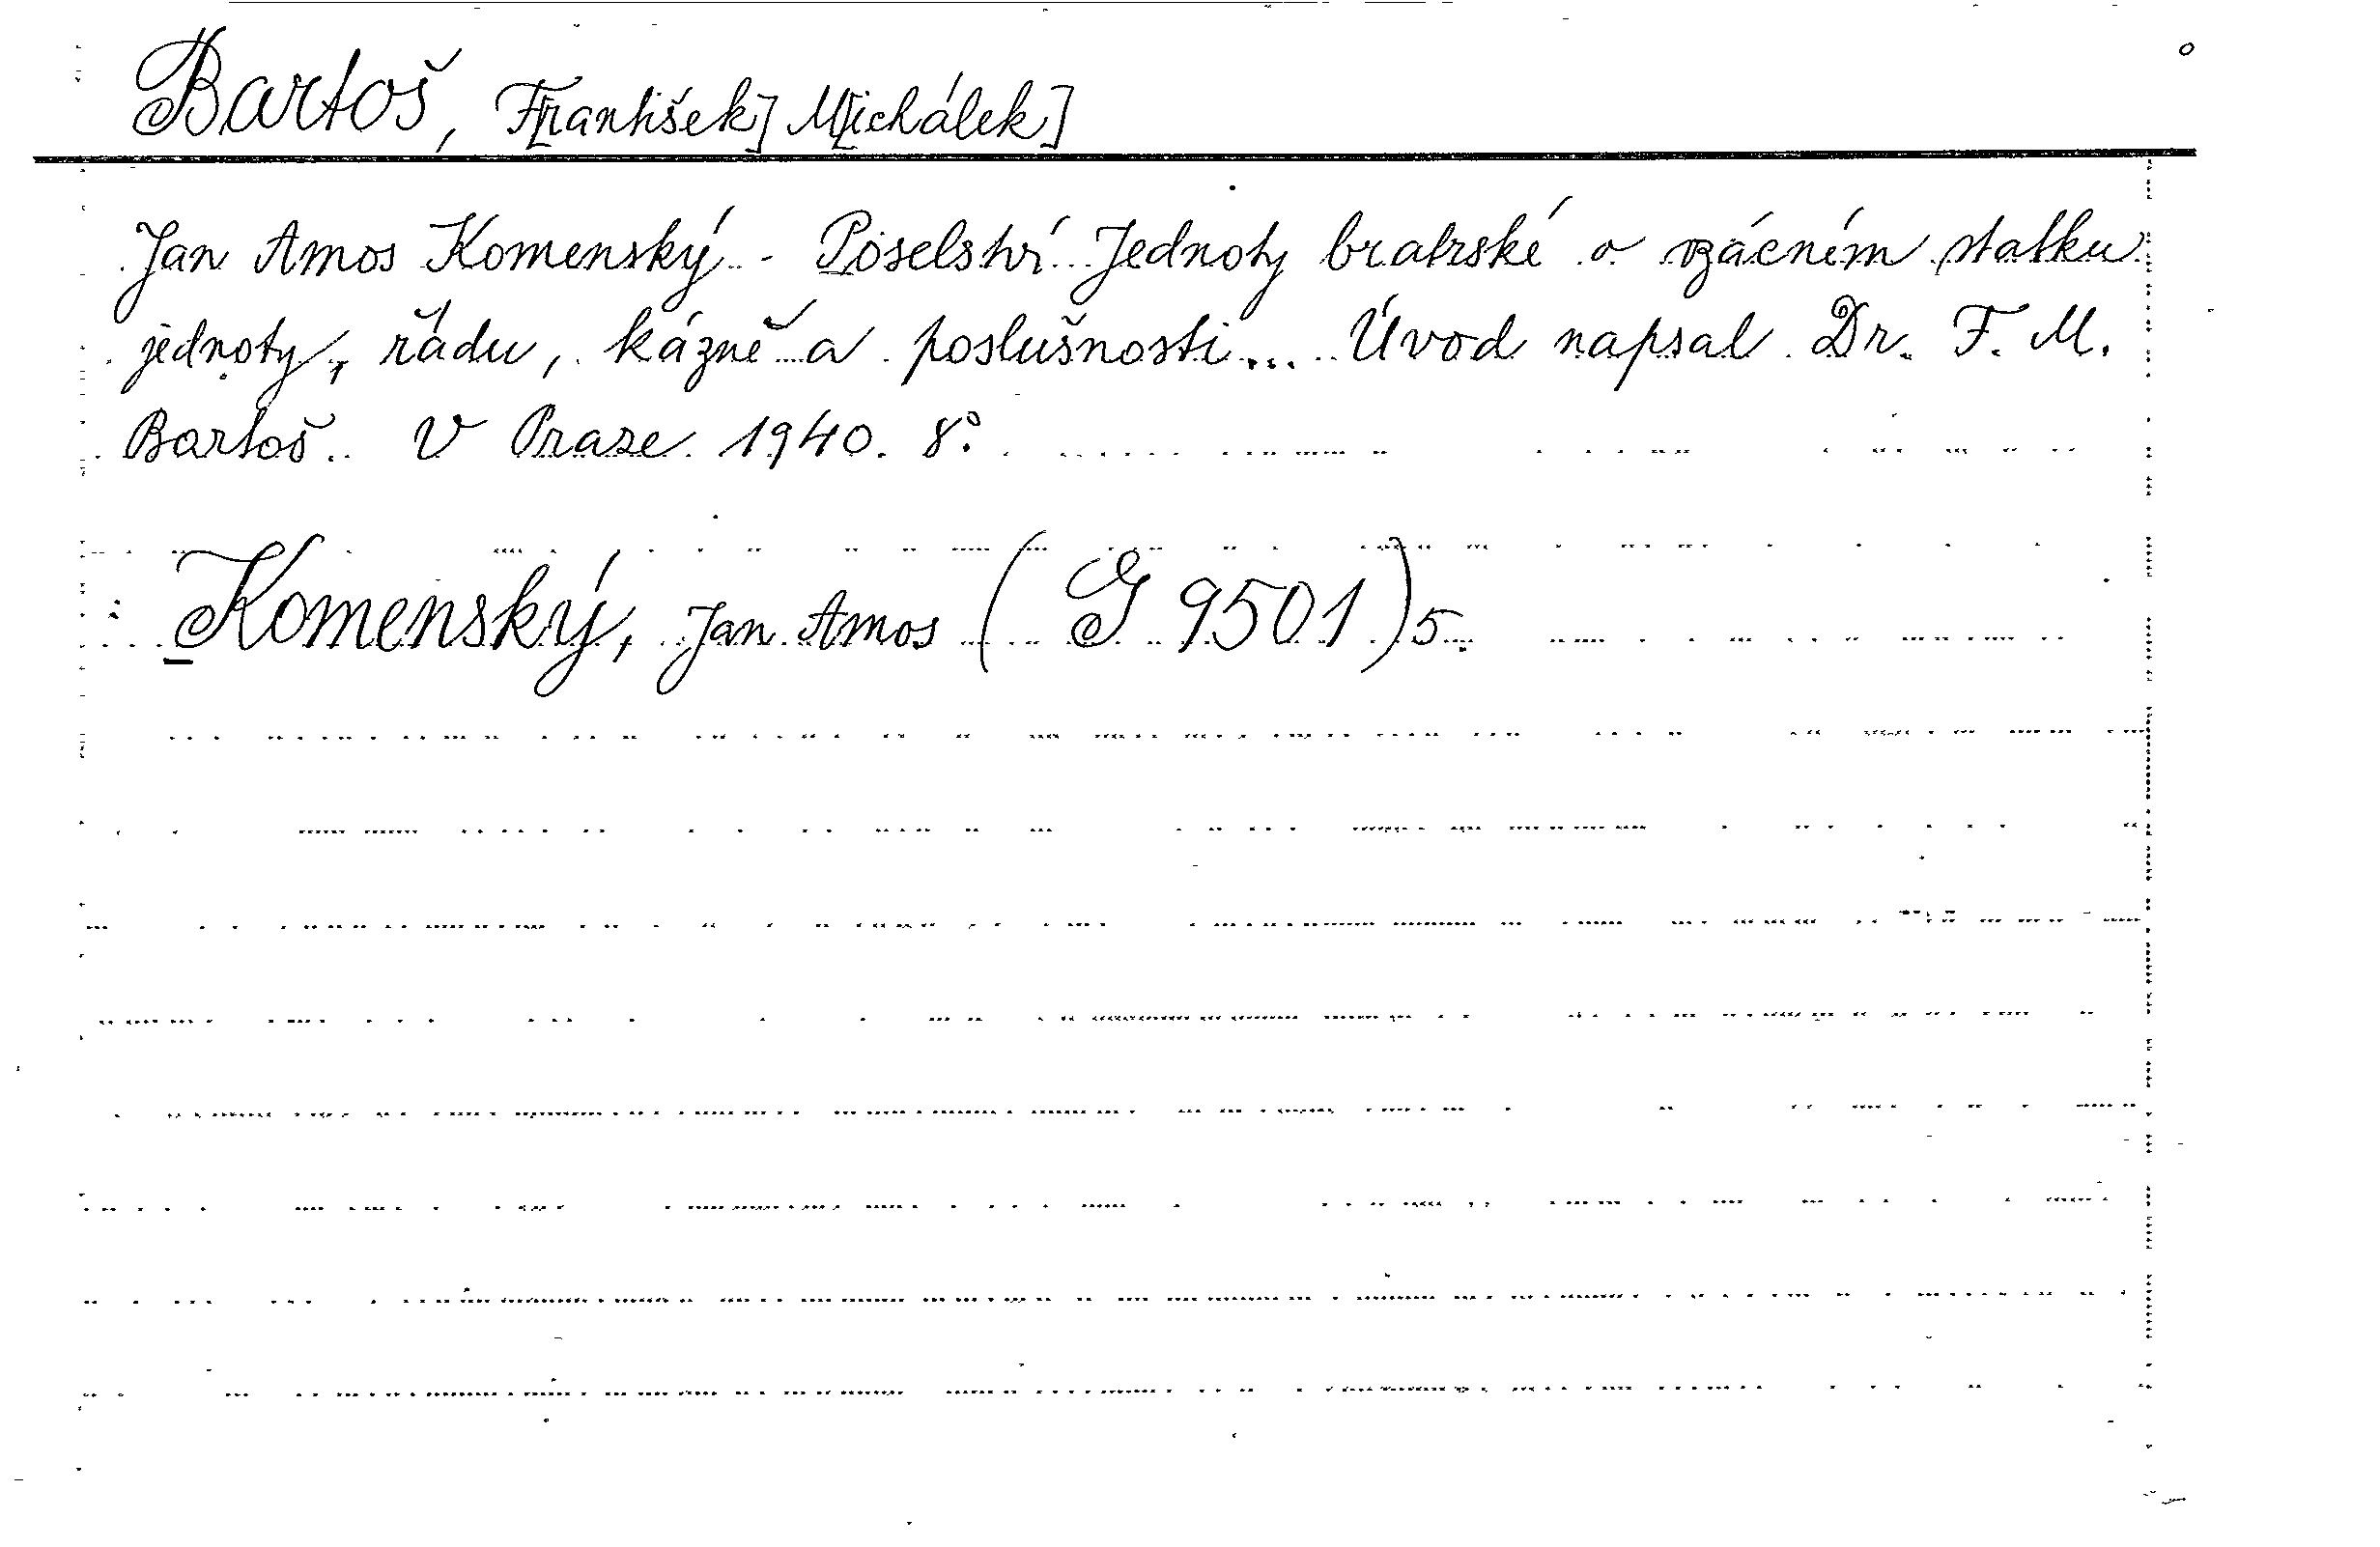 Bartoš, F[rantišek] M[ichálek]
Jan Amos Komenský - Poselství Jednoty bratrské o vzácném statku
jednoty, řádu, kázně a poslušnosti... Úvod napsal Dr. F. M.
Bartoš. V Praze 1940. 8°.
Komenský, Jan Amos (G 9501)5.